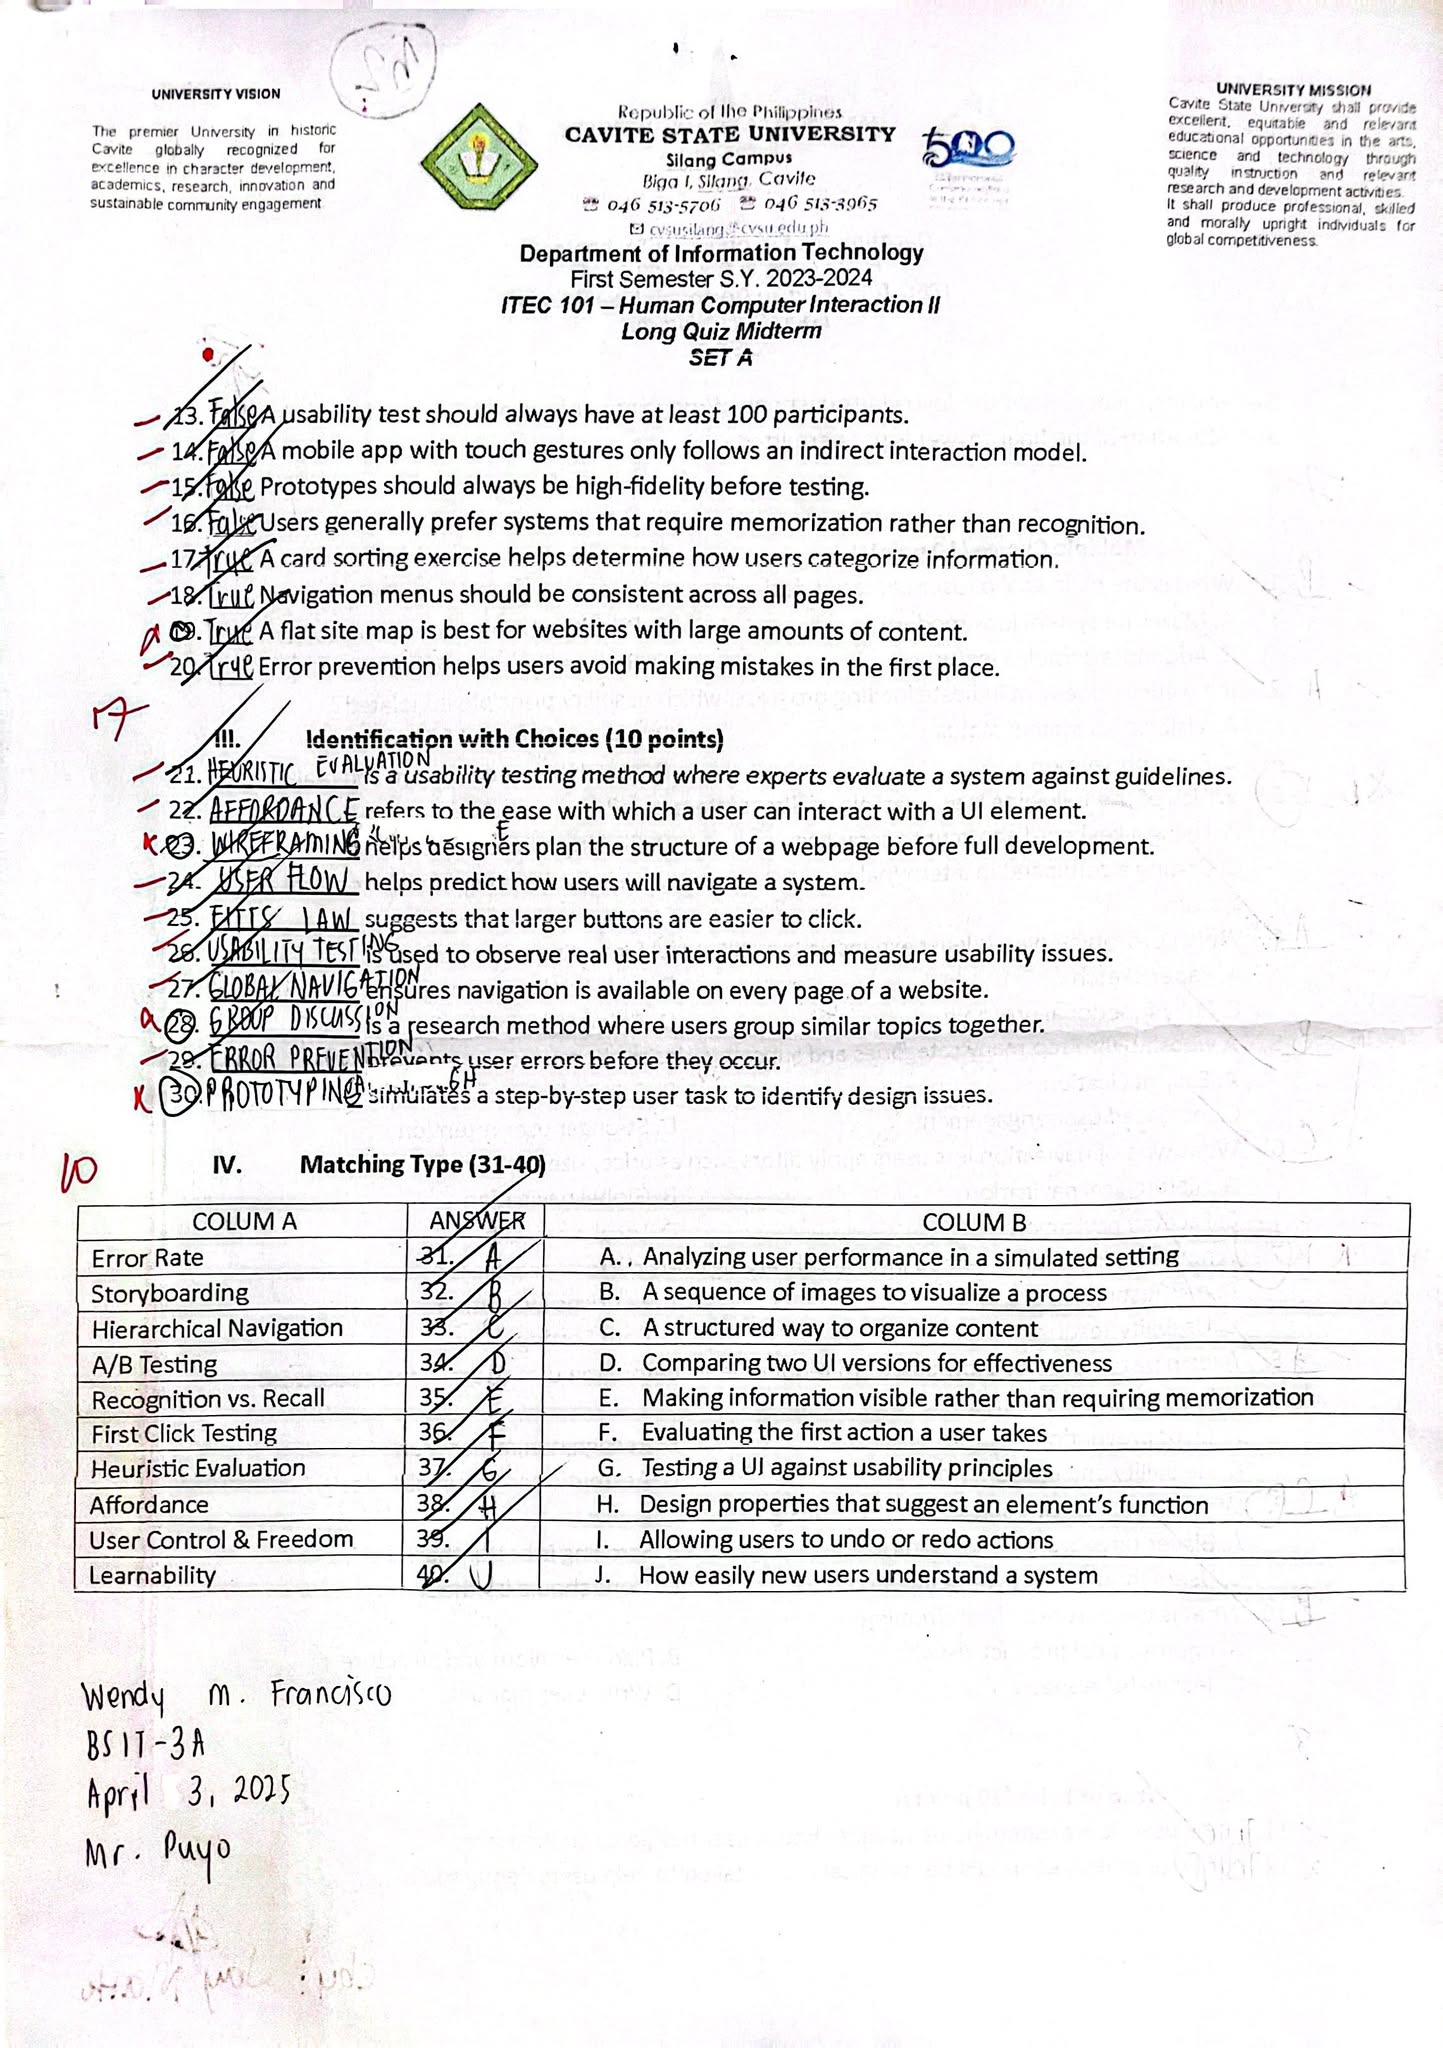 UNIVERSITY VISION
The premier University in historic
Cavite globally recognized for
excellence in character development,
academics, research, innovation and
sustainable community engagement
Republic of the Philippines
CAVITE STATE UNIVERSITY
Silang Campus
Biga I, Silang, Cavite
☏ 046 513-5706 ☏ 046 513-3965
✉ cvsusilang@cvsu.edu.ph
500
UNIVERSITY MISSION
Cavite State University shall provide
excellent, equitable and relevant
educational opportunities in the arts,
science and technology through
quality instruction and relevant
research and development activities.
It shall produce professional, skilled
and morally upright individuals for
global competitiveness.
Department of Information Technology
First Semester S.Y. 2023-2024
ITEC 101 – Human Computer Interaction II
Long Quiz Midterm
SET A
13. False A usability test should always have at least 100 participants.
14. False A mobile app with touch gestures only follows an indirect interaction model.
15. False Prototypes should always be high-fidelity before testing.
16. False Users generally prefer systems that require memorization rather than recognition.
17. True A card sorting exercise helps determine how users categorize information.
18. True Navigation menus should be consistent across all pages.
19. True A flat site map is best for websites with large amounts of content.
20. True Error prevention helps users avoid making mistakes in the first place.
17
III. Identification with Choices (10 points)
21. HEURISTIC EVALUATION is a usability testing method where experts evaluate a system against guidelines.
22. AFFORDANCE refers to the ease with which a user can interact with a UI element.
23. WIREFRAMING helps designers plan the structure of a webpage before full development.
24. USER FLOW helps predict how users will navigate a system.
25. FITTS LAW suggests that larger buttons are easier to click.
26. USABILITY TESTING is used to observe real user interactions and measure usability issues.
27. GLOBAL NAVIGATION ensures navigation is available on every page of a website.
28. GROUP DISCUSSION is a research method where users group similar topics together.
29. ERROR PREVENTION prevents user errors before they occur.
30. PROTOTYPING simulates a step-by-step user task to identify design issues.
10
IV. Matching Type (31-40)
COLUM A ANSWER COLUM B
Error Rate 31. A A. Analyzing user performance in a simulated setting
Storyboarding 32. B B. A sequence of images to visualize a process
Hierarchical Navigation 33. C C. A structured way to organize content
A/B Testing 34. D D. Comparing two UI versions for effectiveness
Recognition vs. Recall 35. E E. Making information visible rather than requiring memorization
First Click Testing 36. F F. Evaluating the first action a user takes
Heuristic Evaluation 37. G G. Testing a UI against usability principles
Affordance 38. H H. Design properties that suggest an element's function
User Control & Freedom 39. I I. Allowing users to undo or redo actions
Learnability 40. J J. How easily new users understand a system
Wendy M. Francisco
BSIT-3A
April 3, 2025
Mr. Puyo